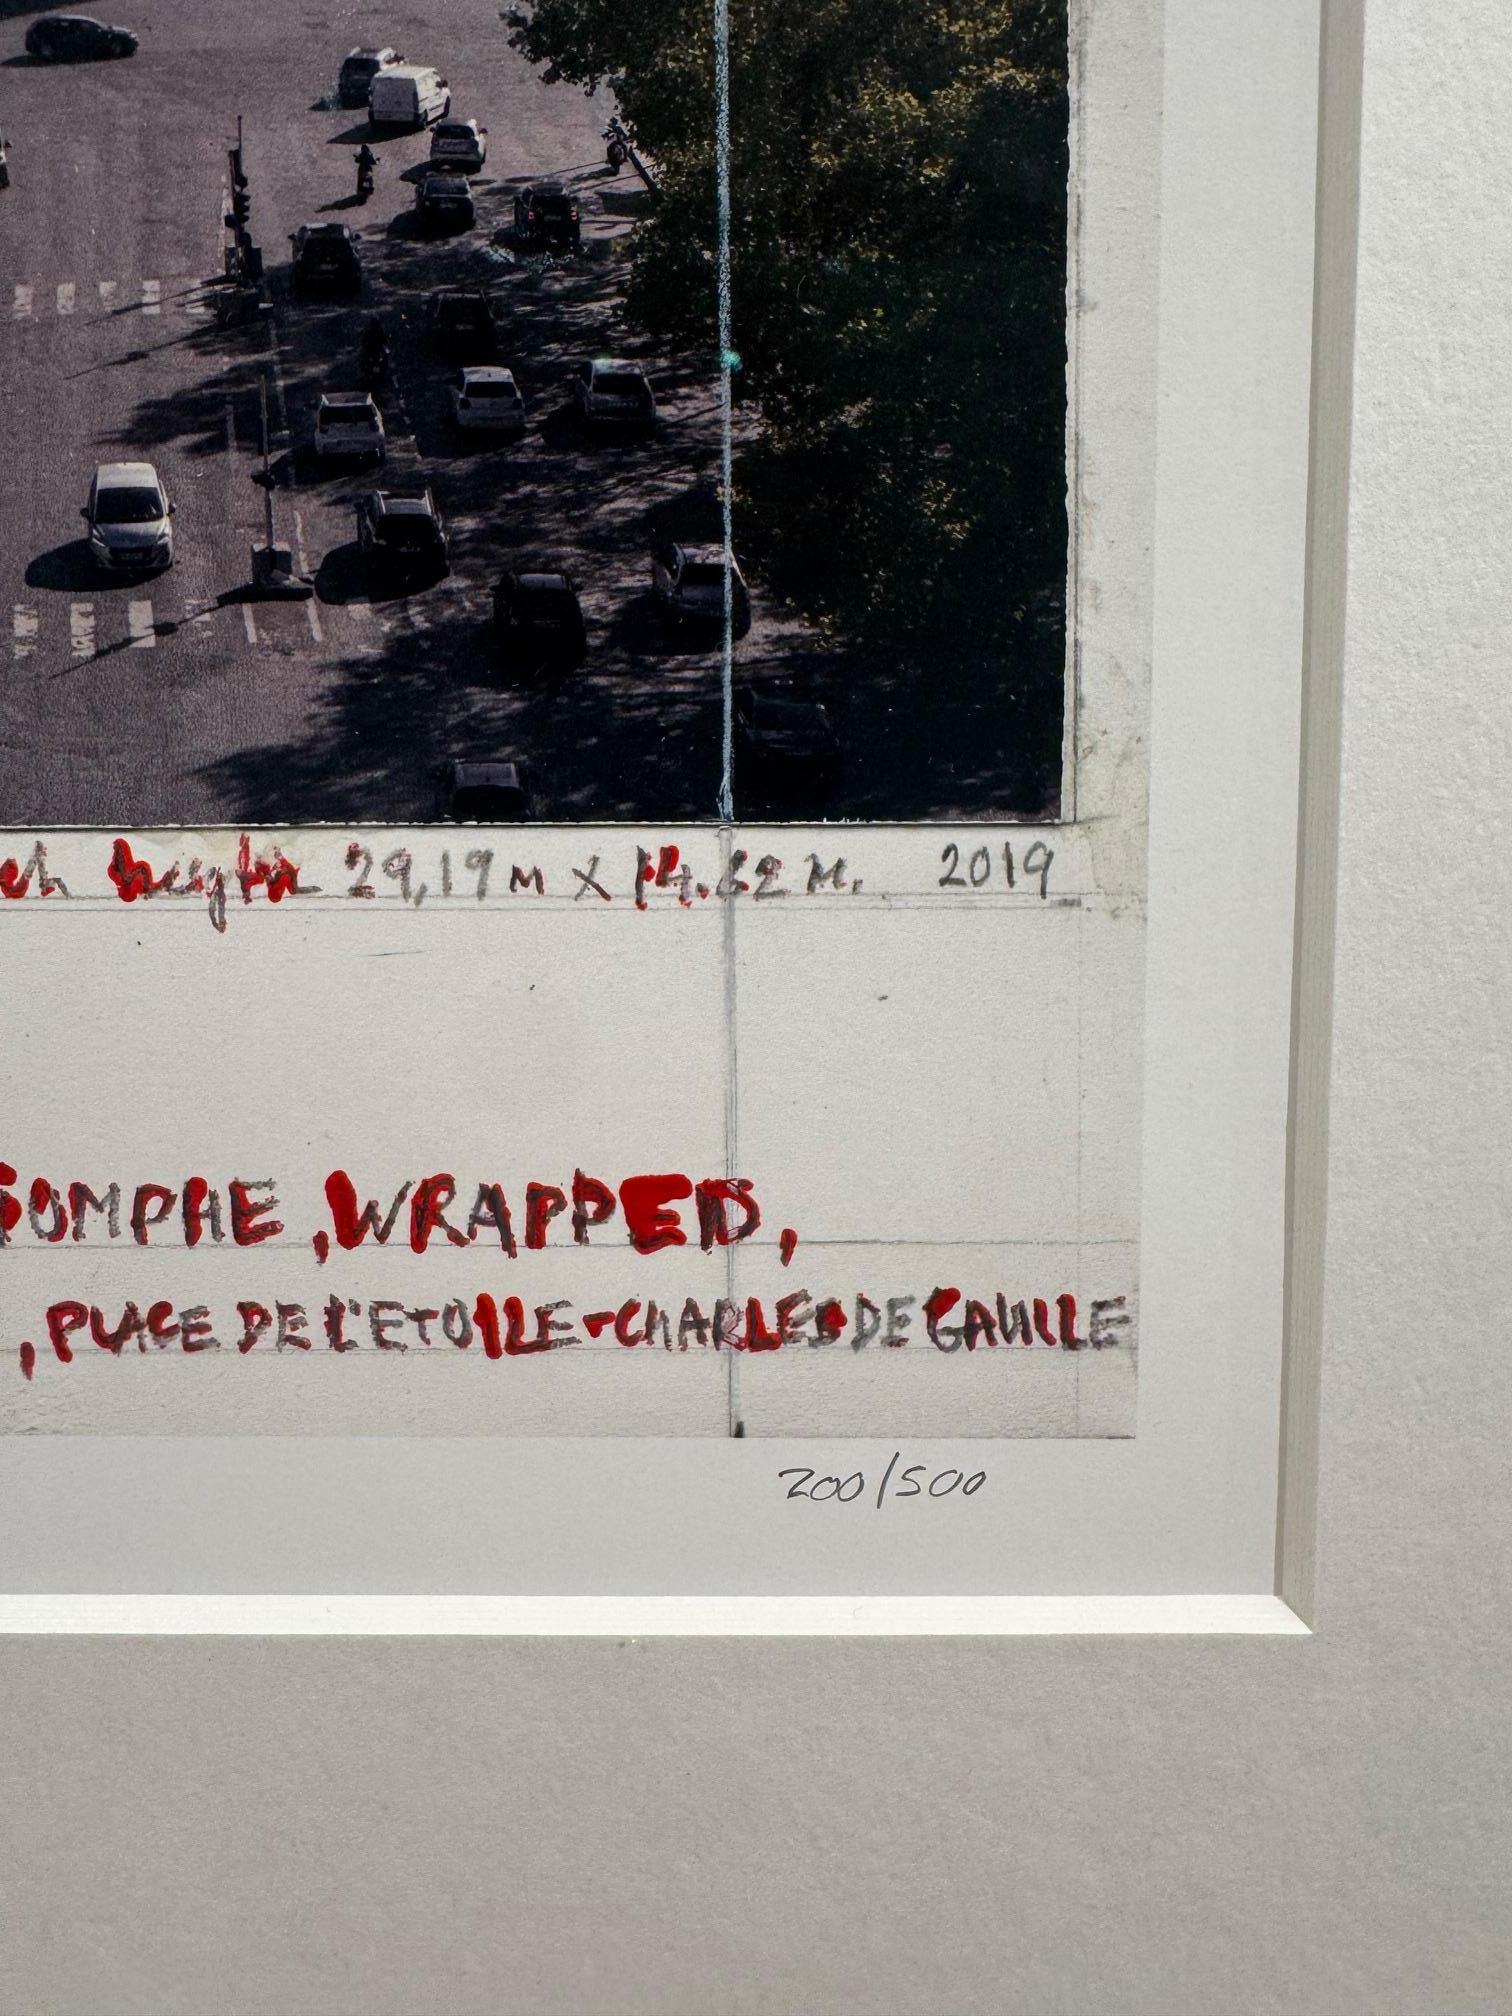 ch heigth 29,19 M X 14.62 M. 2019
IOMPHE, WRAPPED,
, PLACE DE L'ETOILE-CHARLES DE GAULLE
200/500